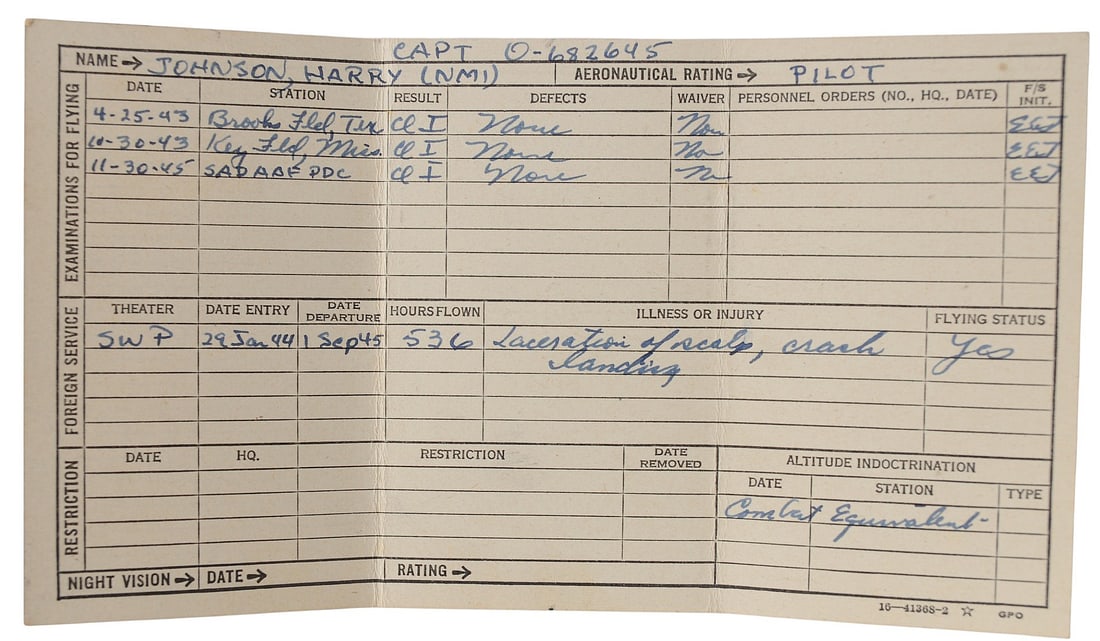 CAPT O-682645
NAME→ JOHNSON, HARRY (NMI) AERONAUTICAL RATING→ PILOT
EXAMINATIONS FOR FLYING
DATE STATION RESULT DEFECTS WAIVER PERSONNEL ORDERS (NO., HQ., DATE) F/S INIT.
4-25-43 Brooks Fld, Tex Cl I None No
10-30-43 Key Fld, Miss. Cl I None No
11-30-45 SAD AAF PDC Cl I None No
FOREIGN SERVICE
THEATER DATE ENTRY DATE DEPARTURE HOURS FLOWN ILLNESS OR INJURY FLYING STATUS
SWP 29 Jan 44 1 Sep 45 536 Laceration of scalp, crash Yes
landing
RESTRICTION
DATE HQ. RESTRICTION DATE REMOVED ALTITUDE INDOCTRINATION
DATE STATION TYPE
Combat Equivalent
NIGHT VISION→ DATE→ RATING→
16—41368-2 ☆ GPO